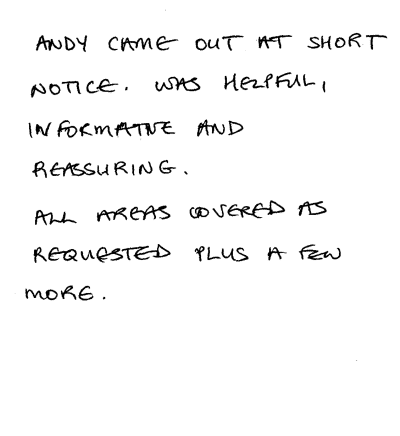 ANDY CAME OUT AT SHORT
NOTICE. WAS HELPFUL,
INFORMATIVE AND
REASSURING.
ALL AREAS COVERED AS
REQUESTED PLUS A FEW
MORE.